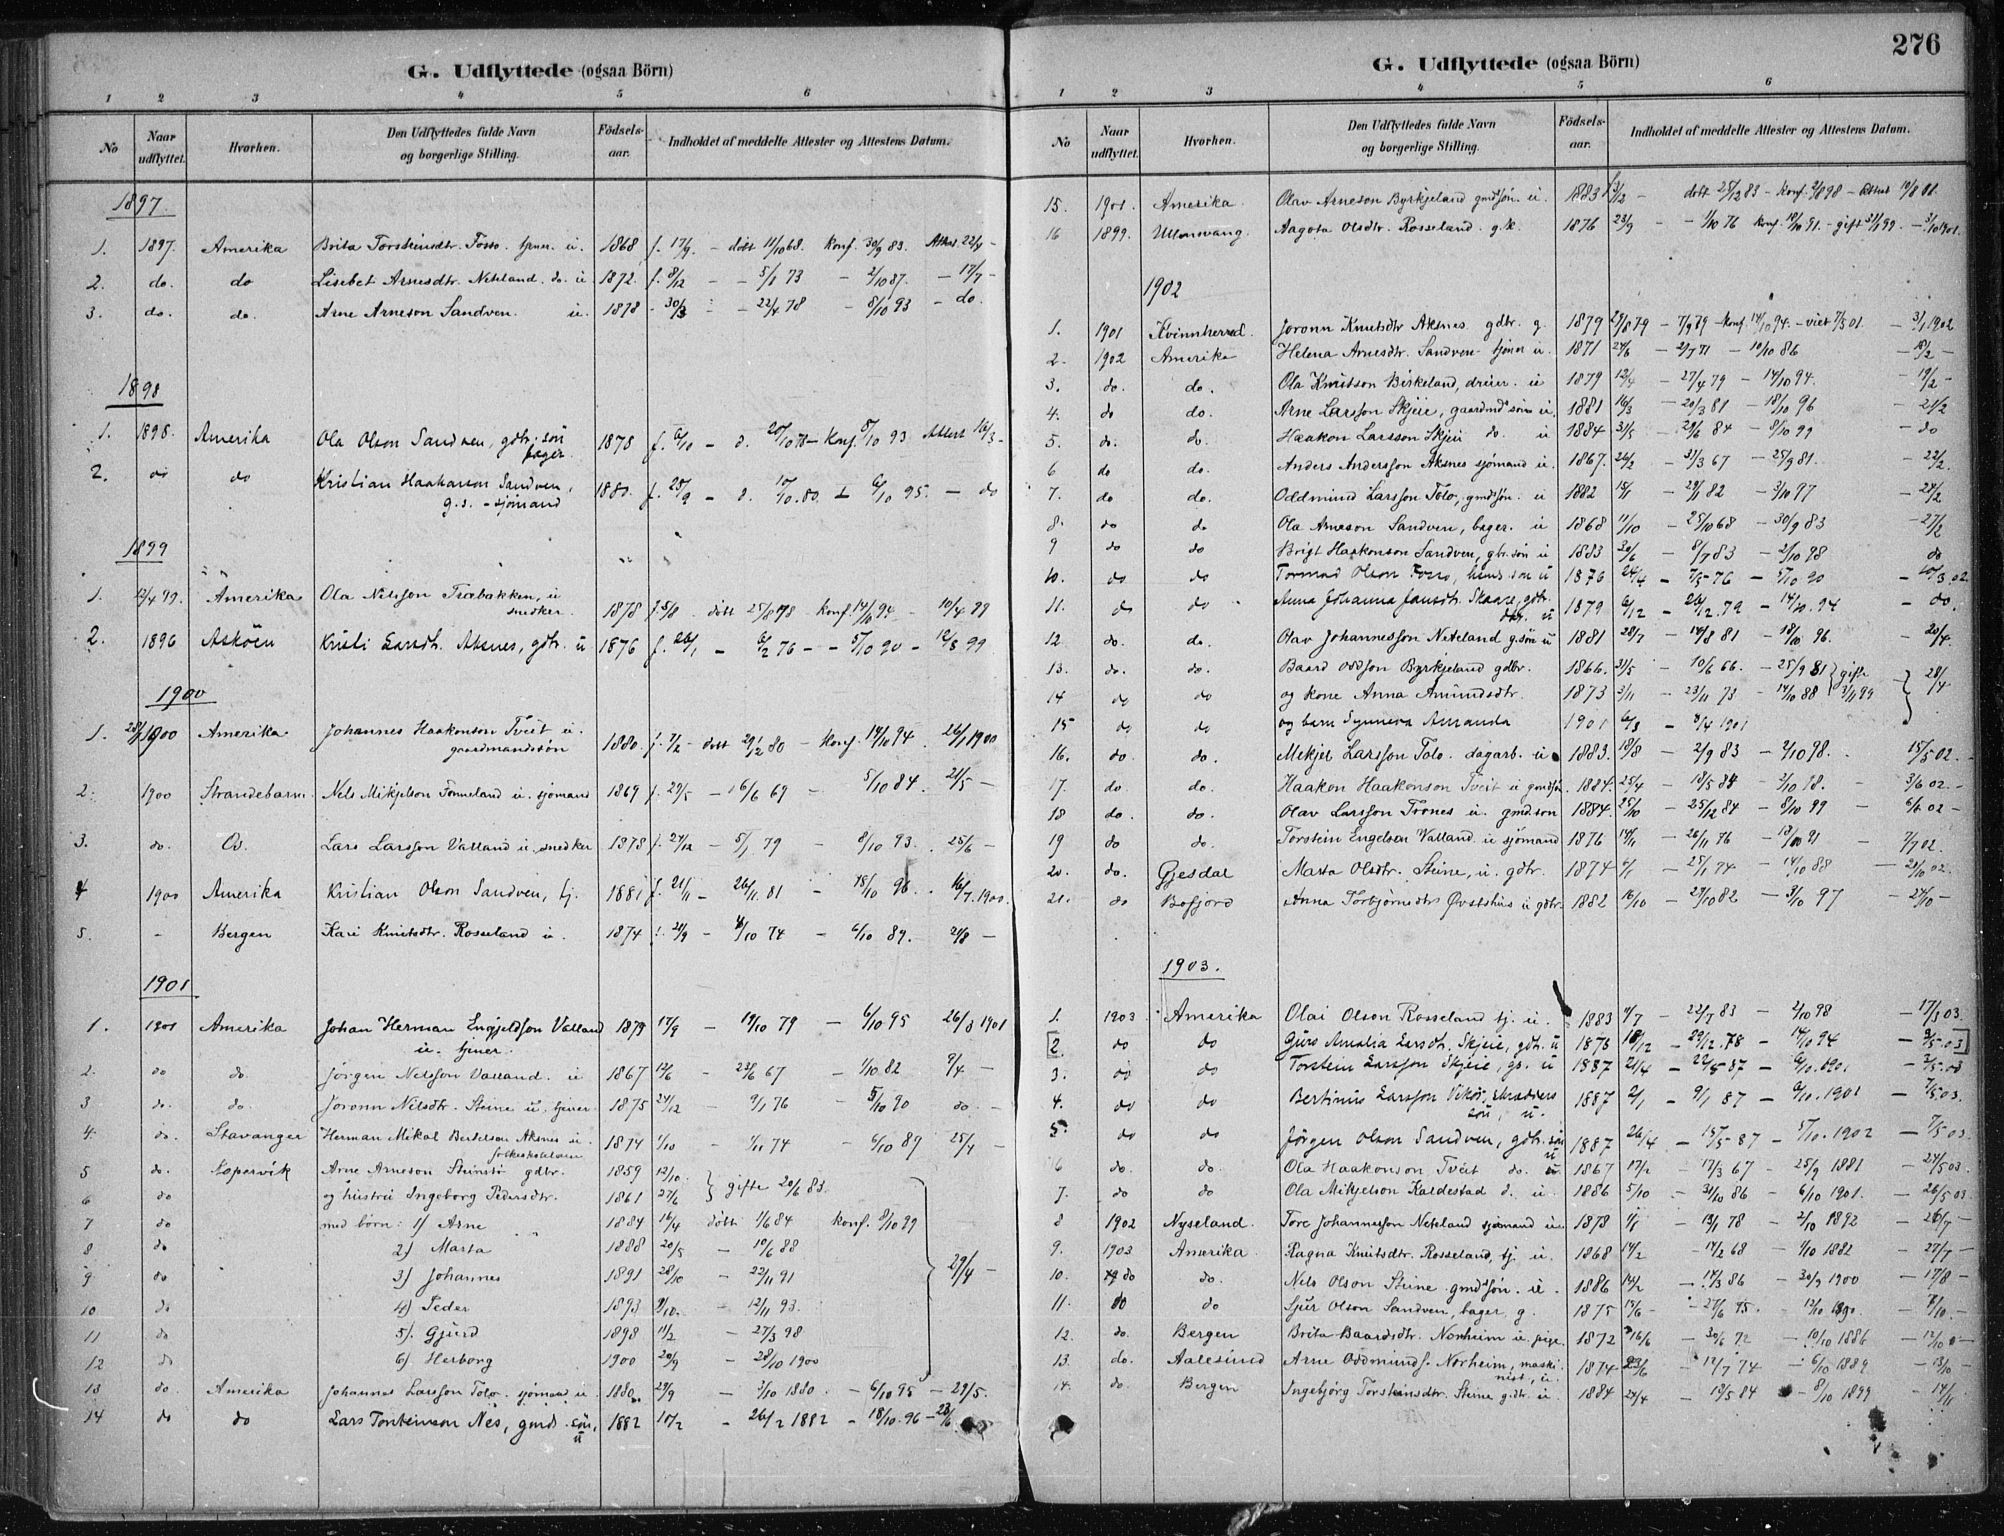 G. Udflyttede (ogsaa Börn)
1 2 3 4 5 6
No Naar udflyttet. Hvorhen. Den Udflyttedes fulde Navn og borgerlige Stilling. Födsels-aar. Indholdet af meddelte Attester og Attestens Datum.
1897.
1. 1897. Amerika Brita Torsteinsdtr. Fosso. tjener. u. 1868 f. 17/9. – döbt 11/10 68. Konf. 30/9 83. Attest 22/4 –
2. do. do Lisebet Arnesdtr. Neteland. do. u 1872. f. 8/12 – – 5/1 73 – 2/10 87. – 17/7 –
3. do. do. Arne Arneson Sandven. u. 1878 – 30/3 – 22/4 78 – 8/10 93 – do.
1898
1. 1898. Amerika Ola Olson Sandven, gdbr. sön
bager. 1878 f. 6/10 – d. 20/10 78 – Konf. 8/10 93 Attest 16/3 –
2. do do Kristian Haakonson Sandven,
g.s. – sjömand 1880. f. 28/9 – d. 10/10 80. – 6/10 95. – do
1899
1. 12/4 99. Amerika Ola Nilsson Træbakken, u
snedker. 1878 f. 5/8 döbt 25/8 78 – konf. 14/6 94 – 10/4 99
2. 1896 Asköen Kristi Larsdtr. Aksnes, gdtr. u 1876 f. 26/1 – 6/2 76 – – 5/10 90 – 12/8 99
1900
1. 28/1 1900 Amerika Johannes Haakonson Tveit u.
gaardmandssön 1880. f. 7/2 – döbt 29/2 80 – Konf. 14/10 94. 26/1 1900
2. 1900 Strandebarm. Nels Mikjelson Fonneland u. sjömand 1869 f. 29/5 – 6/6 69 – 5/10 84. 21/5 –
3. do. Os. Lars Larsson Valland u. snedker 1878 f. 27/12 – 5/1 79 – 8/10 93. . 25/6 –
4 1900 Amerika Kristian Olson Sandven, tj. 1881 f. 21/11 – 26/11 81 – 18/10 96. . 16/7 1900.
5. – Bergen Kari Knutsdtr. Rosseland u. 1874 f. 21/9 – 4/10 74 – 6/10 89. 21/8 –
1901
1. 1901 Amerika Johan Herman Engjeldson Valland
u. tjener. 1879 17/9 – 19/10 79 – 6/10 95 26/3 1901
2. do do. Jörgen Nilsson Valland. u 1867 14/6 – 23/6 67 – 1/10 82 9/4 –
3 do. do. Joronn Nilsdtr. Steine u. tjener. 1875 24/12 – 9/1 76 – 5/10 90 do. –
4. do. Stavanger Herman Mikal Bertelson Aksnes u. 1874 1/10 – 1/11 74 – 6/10 89 25/4 –
5 do. Kopervik Arne Arneson Steinstö gdbr. 1859 12/10.
6 do og hustru Ingeborg Pedersdtr. 1861 27/6 } gifte 20/6 83.
7 do med börn: 1) Arne 1884 16/4 döbt 1/6 84 konf. 8/10 99
8 do 2) Marta 1888 20/5 – 10/6 88
9 do 3) Johannes 1891 28/10 – 22/11 91 29/4 –
10 do 4) Peder 1893 9/10. – 12/11 93.
11 do 5) Gjurd 1898 11/2 – 27/3 98
12 do 6) Herborg 1900 20/9 – 28/10 1900
13 do. Amerika Johannes Larsson Tolo. sjömand u. 1880. 29/9 – 3/10 1880 – 6/10 95 – 29/5.
14 do do Lars Torsteinson Nes, gmds. sön,
u 1882 10/2 – 26/2 1882 – 18/10. 96 – 23/6
276
G. Udflyttede (ogsaa Börn)
1 2 3 4 5 6
No Naar udflyttet. Hvorhen. Den Udflyttedes fulde Navn og borgerlige Stilling. Födsels-aar. Indholdet af meddelte Attester og Attestens Datum.
15. 1901. Amerika. Olav Arneson Byrkjeland gmdsön. u. 1883 – döbt 25/12 83 – Konf. 2/8 98 – Attest 10/8 01.
16 1899. Ullensvang. Aagota Olsdtr. Rosseland. g.k. 1876 23/9 – 1/10 76 konf. 18/10 91. – gift 31/1 99 – 3/10 1901.
1902
1. 1901 Kvinnherred. Joronn Knutsdtr Aksnes. gdbr. g. 1879 29/8 79 – 7/9 79 – konf. 14/10 94. – viet 7/3 01. – 3/1 1902
2. 1902 Amerika Helena Arnesdtr. Sandven tjener u. 1871 24/6 – 2/7 71 – 10/10 86 – 18/2 –
3. do. do. Ola Knutson Birkeland, dreier. u 1879 12/4 – 27/4 79 – 14/10 94. – 19/2 –
4. do do. Arne Larsson Skjeie, gaardmdssön u. 1881 16/3 – 20/3 81 – 18/10 96 – 21/2
5. do. do. Haakon Larsson Skjeie do. u 1884 3/5 – 29/6 84 – 8/10 99 – do
6 do do. Anders Andersson Aksnes sjömand u. 1867. 26/2 – 31/3 67 – 25/9 81. – 22/2.
7. do do. Oddmund Larsson Tolo, gmdsön. u 1882 15/1 – 29/1 82 – 3/10 97 – 24/2
8. do do Ola Arneson Sandven, bager. u 1868 11/10 – 25/10 68 – 30/9 83 – 27/2
9 do do Brigt Haakonson Sandven, gbr. sön u 1883 20/6 – 8/7 83 – 2/10 98 do
10. do do Tormod Olson Foss, husm. sön u 1876 24/4 – 7/5 76 – 5/10 90 – 10/3 02.
11. do do Anna Johanna Jansdtr. Skaare, gdbr.
dtr. u 1879 6/12 – 26/12. 79 – 14/10. 94 – do.
12. do. do. Olav Johannesson Neteland g. sön u 1881 28/7 – 14/8 81 – 18/10 96. – 20/4
13. do. do. Baard Oddson Byrkjeland gdbr. 1866. 31/5 – 10/6 66. – 25/9 81
14 do do og kone Anna Amundsdtr. 1873 3/11 – 23/11 73 – 14/10 88 } gifte 3/11 99 – 28/4
15 do do og barn Synneva Amanda 1901 6/3 – 8/4 1901
16. do. do. Mikjel Larsson Tolo. dagarb. u. 1883. 18/8 – 2/9 83 – 2/10 98. – 15/5 02. –
17. do. do. Haakon Haakonson Tveit u gmdsön. 1884. 25/4 – 18/5 84 – 2/10 98. – 3/6 02. –
18 do. do. Olav Larsson Trones u. gmd.son 1884. 25/10 – 25/12 84 – 8/10 99 – 6/6 02 –
19 do do. Torstein Engelsen Valland u sjömand 1876 14/11 – 26/11 76 – 18/10 91 – 7/7 02.
20. do. Gjesdal Marta Olsdtr. Steine, u. gdtr. 1874 6/1 – 25/1 74 – 14/10 88 – 21/10 02.
21. do Bofjord Anna Torbjörnsdtr Övsthus u gdtr. 1882 16/10 – 29/10 82 – 3/10 97 – 24/10 –
1903.
1. 1903. Amerika Olai Olson Rosseland tj. u. 1883 4/7 – 22/7 83 – 2/10 98 – 17/3 03.
[2. do do Guro Amalia Larsdtr. Skjeie, gdtr. u 1878 18/12 – 29/12. 78 – 14/10 94 – 2/5 03]
3. do do Torstein Larsson Skjeie, gs. u 1887 21/4 – 22/5 87 – 6/10 1901 – 2/5 03
4. do do Bertinius Larsson Vikör, skrædders
sön, u. 1887 2/1 – 9/1 87 – 6/10. 1901 – 7/5 03.
5 do do Jörgen Olson Sandven, gdbr. sön
u 1887 26/4 – 15/5 87 – 5/10. 1902 – 7/5 03.
6 do. do. Ola Haakonson Tveit do. u 1867 17/2 – 17/3 67 – 25/9 1881 – 24/5 03.
7. do do Ola Mikjelson Kaldestad d. u. 1886 5/10 – 31/10 86 – 6/10 1901. – 26/5 03.
8 1902 Nyseland. Tore Johannesson Neteland sjömand u. 1878 1/1 – 13/1 78 – 2/10 1892 – 26/7 –
9. 1903 Amerika. Ragna Knutsdtr. Rosseland, tj. u. 1868 14/2 – 14/2 68 – 1/10 1882 – 27/7 –
10. do do. Nels Olson Steine gmdsön. u. 1886 14/2 – 17/3 86 – 30/9 1900 – 17/8 –
11. do do Sjur Olson Sandven, bager, g. 1875 14/6 – 27/6 95. – 12/10 1890. – 7/10. –
12. do. Bergen Brita Baardsdtr. Norheim u. pige 1872 16/6 – 30/6 72 – 10/10 1886 – 12/10 0 –
13. do. Aalesund Arne Oddmunds. Norheim, maski-
nist, u. 1874 23/6 – 12/7 74 – 6/10 1889 – 13/10 –
14. do Bergen Ingebjörg Torsteinsdtr. Steine gdtr. u. 1884 24/4 – 18/5 84 – 8/10 1899 – 14/11